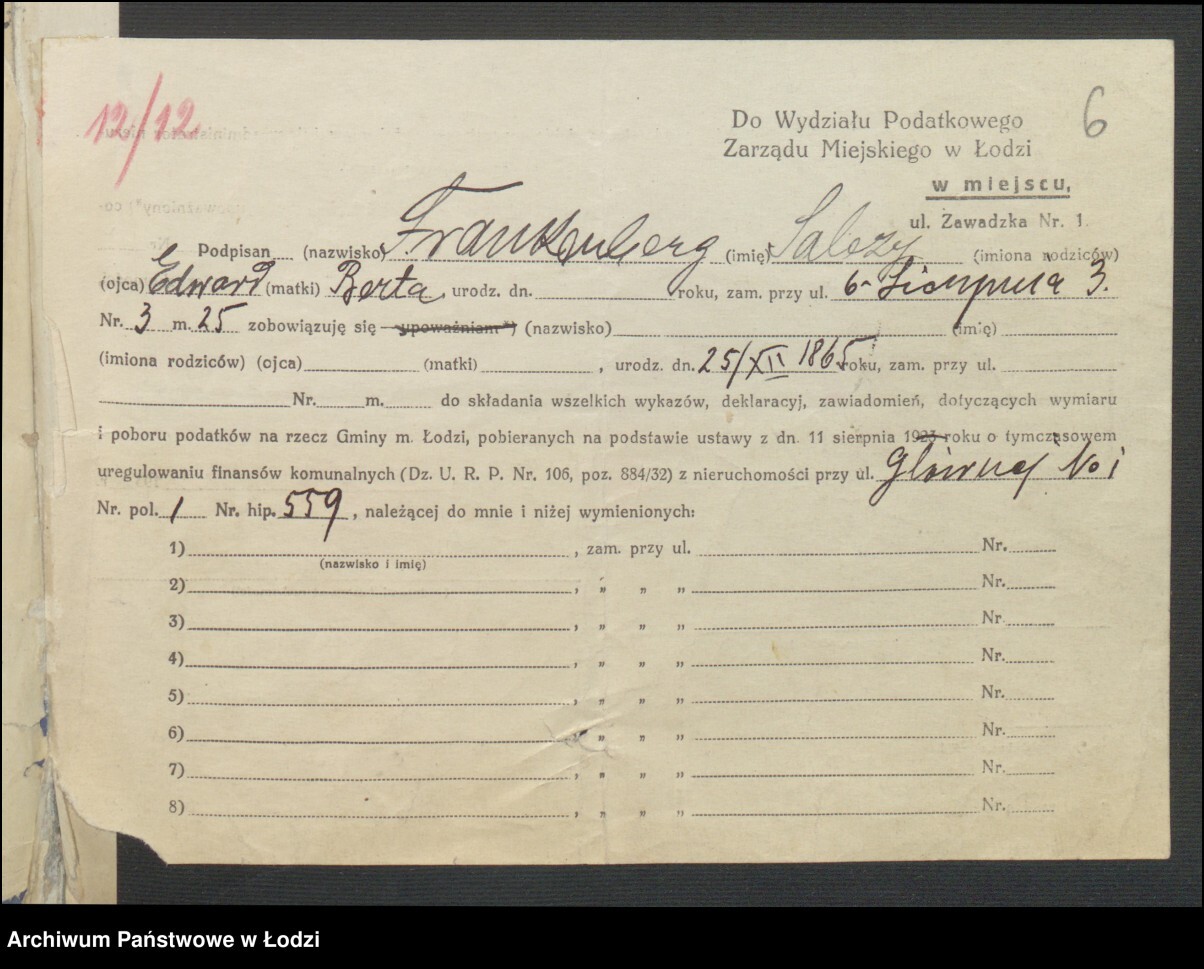 12/12
6
Do Wydziału Podatkowego
Zarządu Miejskiego w Łodzi
w miejscu,
ul. Zawadzka Nr. 1.
Podpisan (nazwisko) Frankenberg (imię) Salezy (imiona rodziców)
(ojca) Edward (matki) Berta, urodz. dn. roku, zam. przy ul. 6-Sierpnia 3.
Nr. 3 m. 25 zobowiązuję się upoważniam*) (nazwisko) (imię)
(imiona rodziców) (ojca) (matki) , urodz. dn. 25/XII 1865 roku, zam. przy ul.
Nr. m. do składania wszelkich wykazów, deklaracyj, zawiadomień, dotyczących wymiaru
i poboru podatków na rzecz Gminy m. Łodzi, pobieranych na podstawie ustawy z dn. 11 sierpnia 1923 roku o tymczasowem
uregulowaniu finansów komunalnych (Dz. U. R. P. Nr. 106, poz. 884/32) z nieruchomości przy ul. Głównej No 1
Nr. pol. 1 Nr. hip. 559, należącej do mnie i niżej wymienionych:
1) , zam. przy ul. Nr.
(nazwisko i imię)
2) , „ „ „ Nr.
3) , „ „ „ Nr.
4) , „ „ „ Nr.
5) , „ „ „ Nr.
6) , „ „ „ Nr.
7) , „ „ „ Nr.
8) , „ „ „ Nr.
Archiwum Państwowe w Łodzi